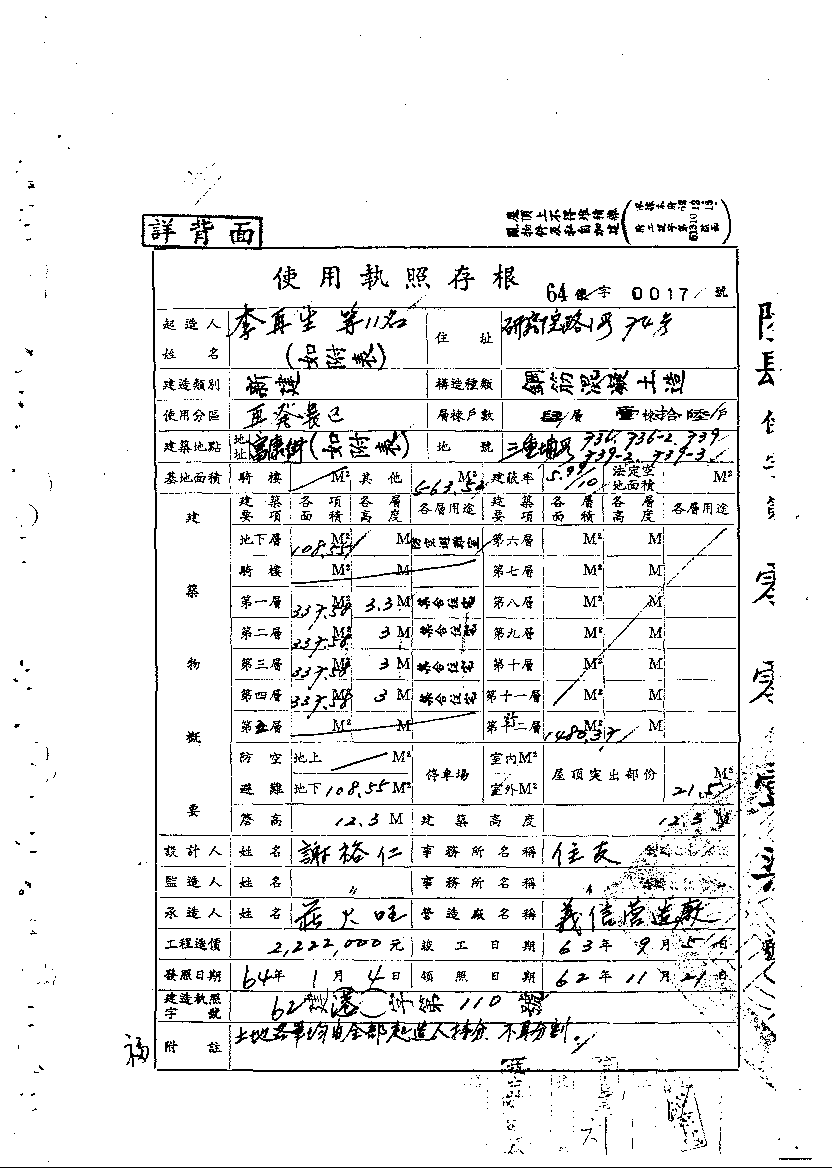 詳背面
屋頂上不得堆積雜
亂物件及私自加建
使用執照存根
64 使字 0017 號
起造人姓名 李再生等11名(如附表) 住址 研究院路1段74号
建造類別 新建 構造種類 鋼筋混凝土造
使用分區 層棟戶數 層
建築地點 地址 富康街(如附表) 地號 736.736-2.739 739-2.739-3
基地面積 騎樓 M² 其他 563.52 M² 建蔽率 5.99/10 法定空地面積 M²
建築物概要 建築要項 各項面積 各層高度 各層用途 建築要項 各層面積 各層高度 各層用途
地下層 108.55 M² M 防空避難室 第六層 M² M
騎樓 M² M 第七層 M² M
第一層 337.58 M² 3.3 M 集合住宅 第八層 M² M
第二層 337.58 M² 3 M 集合住宅 第九層 M² M
第三層 337.58 M² 3 M 集合住宅 第十層 M² M
第四層 337.58 M² 3 M 集合住宅 第十一層 M² M
第五層 M² M 第十二層 計 1480.37 M² M
防空避難 地上 M² 停車場 室內M² 屋頂突出部份 21.5 M²
地下 108.55 M² 室外M²
簷高 12.3 M 建築高度 12.3 M
設計人 姓名 謝裕仁 事務所名稱 住友
監造人 姓名 〃 事務所名稱 〃
承造人 姓名 莊火旺 營造廠名稱 義信營造廠
工程造價 2,222,000元 竣工日期 63年9月5日
發照日期 64年1月4日 領照日期 62年11月21日
建造執照字號 62 建(港)字第110號
附註 土地各筆均由全部起造人持分.不再分割。
福